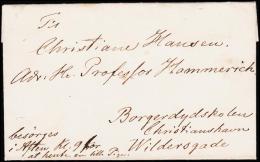 Til
Christiane Hansen.
Adr. Hr. Professor Hammerich
Borgerdydskolen
Christianshavn
Wildersgade
besørges
i Aften, Kl. 9
at hente en lille Pige.